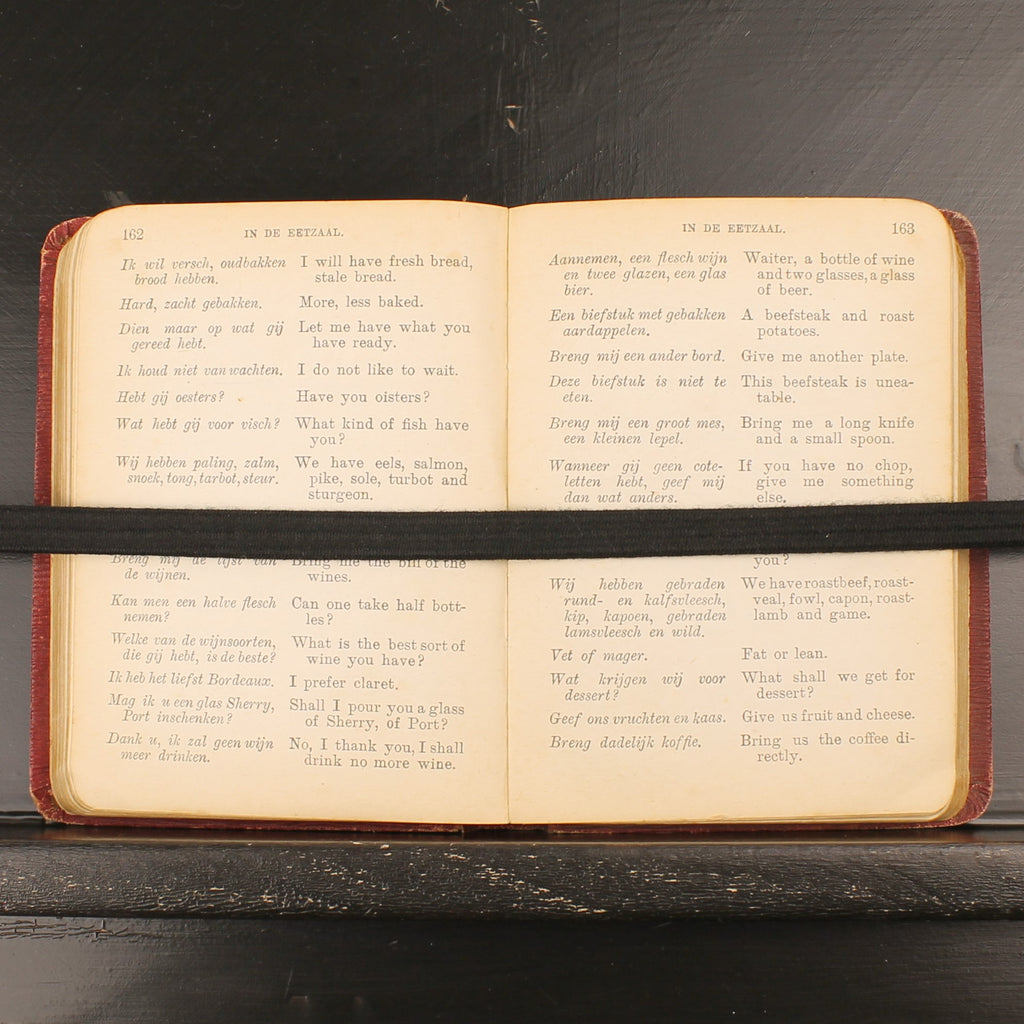 162
IN DE EETZAAL.
Ik wil versch, oudbakken
brood hebben.
I will have fresh bread,
stale bread.
Hard, zacht gebakken.
More, less baked.
Dien maar op wat gij
gereed hebt.
Let me have what you
have ready.
Ik houd niet van wachten.
I do not like to wait.
Hebt gij oesters?
Have you oisters?
Wat hebt gij voor visch?
What kind of fish have
you?
Wij hebben paling, zalm,
snoek, tong, tarbot, steur.
We have eels, salmon,
pike, sole, turbot and
sturgeon.
Breng mij de lijst van
de wijnen.
Bring me the bill of the
wines.
Kan men een halve flesch
nemen?
Can one take half bott-
les?
Welke van de wijnsoorten,
die gij hebt, is de beste?
What is the best sort of
wine you have?
Ik heb het liefst Bordeaux.
I prefer claret.
Mag ik u een glas Sherry,
Port inschenken?
Shall I pour you a glass
of Sherry, of Port?
Dank u, ik zal geen wijn
meer drinken.
No, I thank you, I shall
drink no more wine.
IN DE EETZAAL.
163
Aannemen, een flesch wijn
en twee glazen, een glas
bier.
Waiter, a bottle of wine
and two glasses, a glass
of beer.
Een biefstuk met gebakken
aardappelen.
A beefsteak and roast
potatoes.
Breng mij een ander bord.
Give me another plate.
Deze biefstuk is niet te
eten.
This beefsteak is unea-
table.
Breng mij een groot mes,
een kleinen lepel.
Bring me a long knife
and a small spoon.
Wanneer gij geen cote-
letten hebt, geef mij
dan wat anders.
If you have no chop,
give me something
else.
you?
Wij hebben gebraden
rund- en kalfsvleesch,
kip, kapoen, gebraden
lamsvleesch en wild.
We have roastbeef, roast-
veal, fowl, capon, roast-
lamb and game.
Vet of mager.
Fat or lean.
Wat krijgen wij voor
dessert?
What shall we get for
dessert?
Geef ons vruchten en kaas.
Give us fruit and cheese.
Breng dadelijk koffie.
Bring us the coffee di-
rectly.